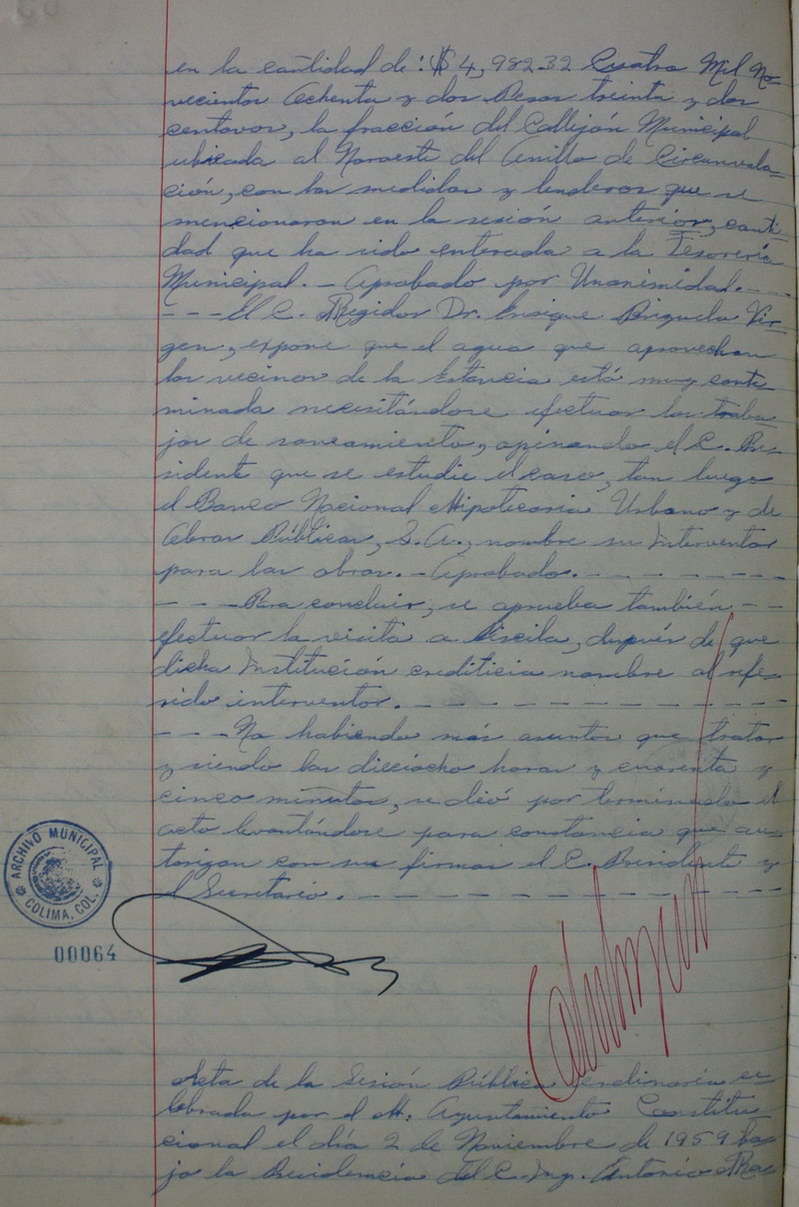 en la cantidad de: $ 4,982.32 Cuatro Mil No-
vecientos Ochenta y dos Pesos treinta y dos
centavos, la fracción del Callejón Municipal
ubicada al Noroeste del Anillo de Circunvala-
ción, con las medidas y linderos que se
mencionaron en la sesión anterior, canti-
dad que ha sido enterada a la Tesorería
Municipal. - Aprobado por Unanimidad. - - -
- - - El C. Regidor Dr. Enrique Brizuela Vir-
gen, expone que el agua que aprovechan
los vecinos de la Estancia está muy conta-
minada necesitándose efectuar los traba-
jos de saneamiento, opinando el C. Pre-
sidente que se estudie el caso, tan luego
el Banco Nacional Hipotecario Urbano y de
Obras Públicas, S.A., nombre su Interventor
para las obras. - Aprobado. - - - - - - - -
- - - Para concluir, se aprueba también - -
efectuar la visita a Piscila, después de que
dicha Institución crediticia nombre al refe-
rido interventor. - - - - - - - - - - - - -
- - - No habiendo más asuntos que tratar
y siendo las dieciocho horas y cuarenta y
cinco minutos, se dió por terminado el
acto levantándose para constancia que au-
torizan con sus firmas el C. Presidente y
el Secretario. - - - - - - - - - - - - - -
ARCHIVO MUNICIPAL
COLIMA, COL.
00064
Acta de la Sesión Pública Ordinaria ce-
lebrada por el H. Ayuntamiento Constitu-
cional el día 2 de Noviembre de 1959 ba-
jo la Presidencia del C. Ing. Antonio